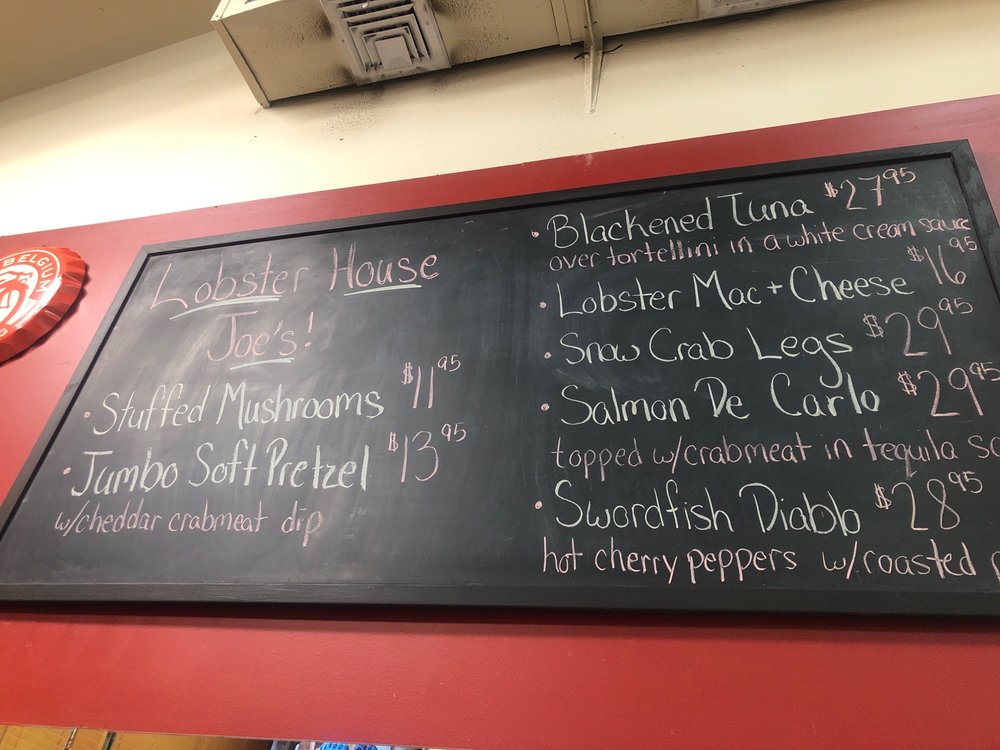 BELGIUM
Lobster House
Joe's!
• Stuffed Mushrooms $11.95
• Jumbo Soft Pretzel $13.95
w/cheddar crabmeat dip
• Blackened Tuna $27.95
over tortellini in a white cream sauce
• Lobster Mac + Cheese $16.95
• Snow Crab Legs $29.95
• Salmon De Carlo $29.95
topped w/crabmeat in tequila
• Swordfish Diablo $28.95
hot cherry peppers w/roasted